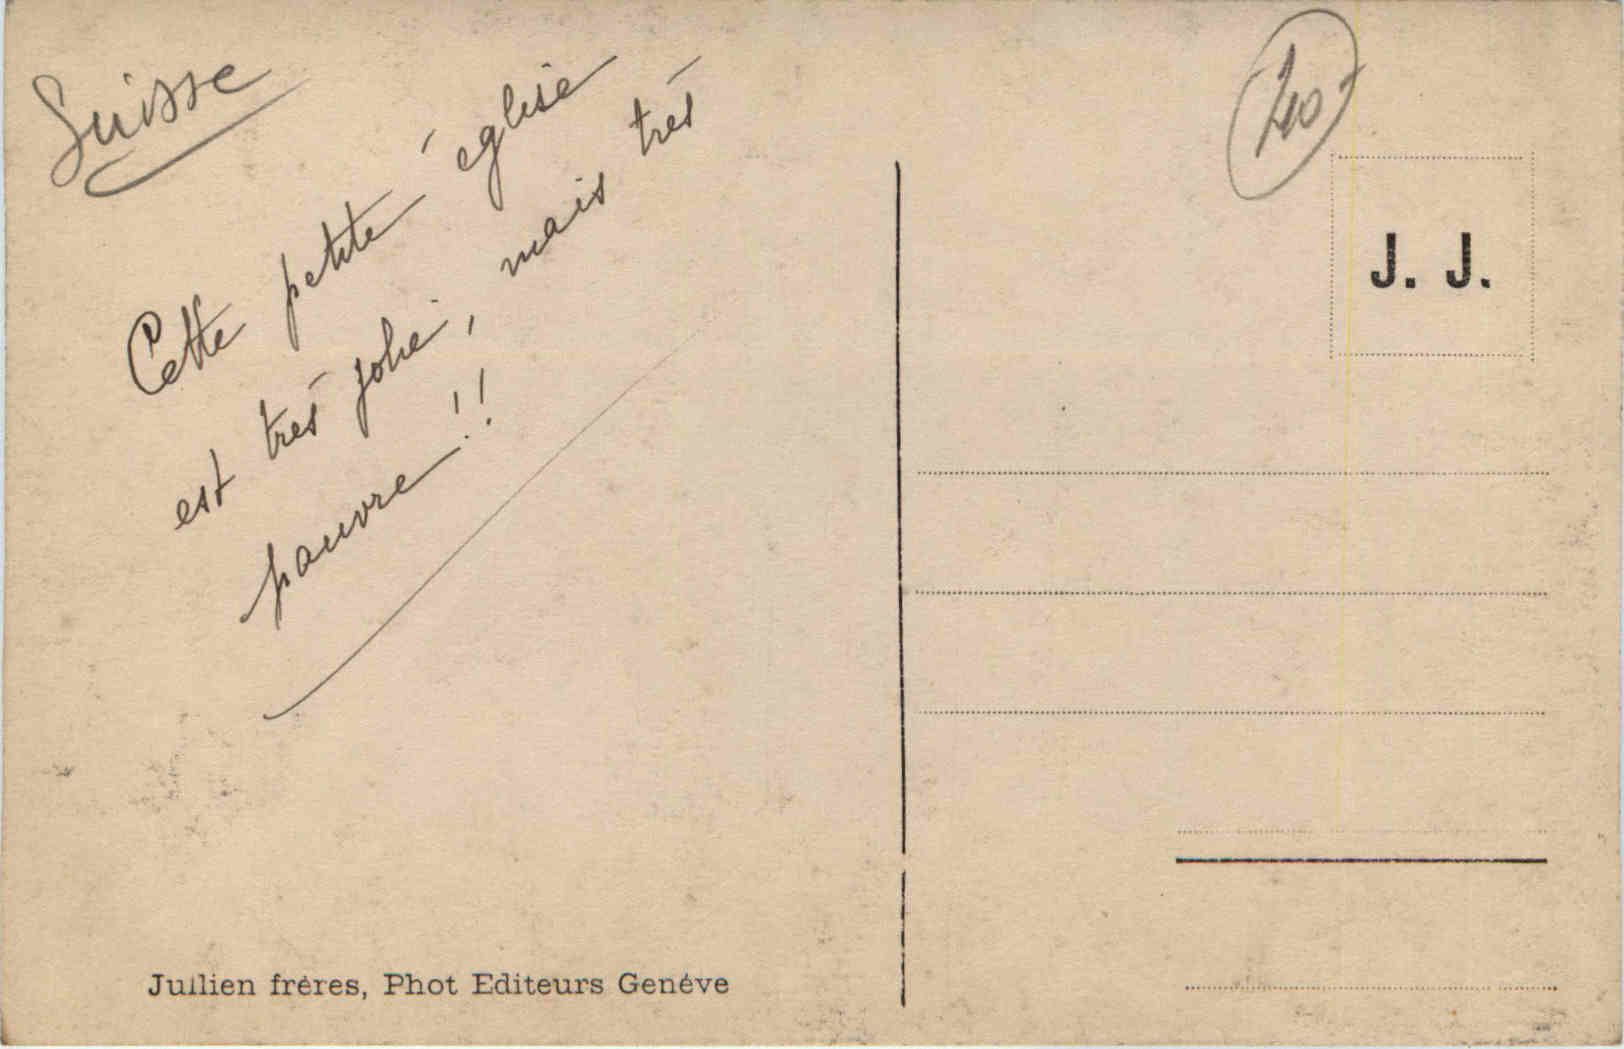 Suisse
Cette petite église
est trés jolie, mais trés
pauvre!!
J. J.
Jullien fréres, Phot Editeurs Genéve